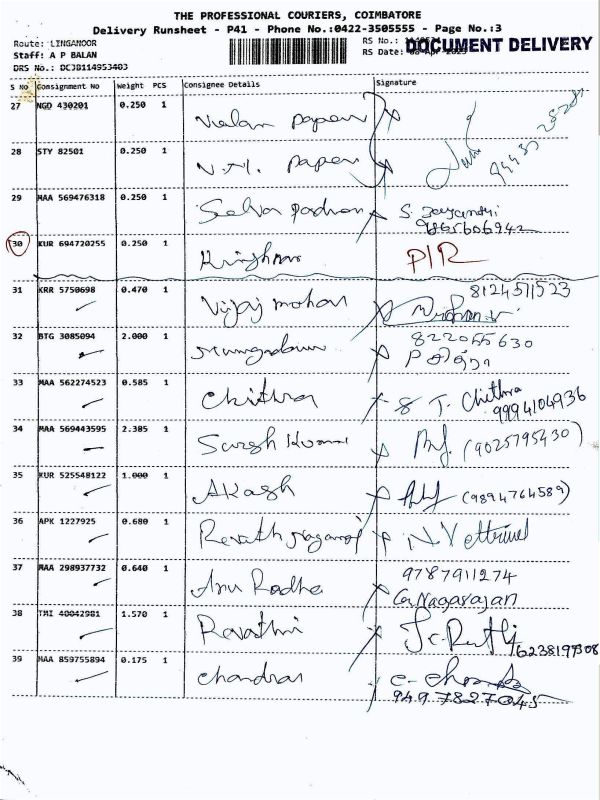 THE PROFESSIONAL COURIERS, COIMBATORE
Delivery Runsheet - P41 - Phone No.:0422-3505555 - Page No.:3
Route: LINGANOOR
Staff: A P BALAN
DRS No.: DCJB114953403
RS No.:
RS Date:
DOCUMENT DELIVERY
S No Consignment No Weight PCS Consignee Details Signature
27 NGD 430201 0.250 1 papers
28 STY 82501 0.250 1 V.M. papers
29 MAA 569476318 0.250 1 Selva S. Jeyanthi
30 KUR 694720255 0.250 1 Krishna P/R
31 KRR 5750698 0.470 1 Vijay mohan 8124511523
32 BTG 3085094 2.000 1 822055630
33 MAA 562274523 0.585 1 Chithra T. Chithra
9994104936
34 MAA 569443595 2.385 1 Suresh Kumar (9025795430)
35 KUR 525548122 1.000 1 Akash (9894764589)
36 APK 1227925 0.680 1 N. Vettrivel
37 MAA 298937732 0.640 1 Anu Radha 9787911274
G. Nagarajan
38 TMI 40042981 1.570 1 Revathi
6238197308
39 MAA 859755894 0.175 1 Chandran
9497827045